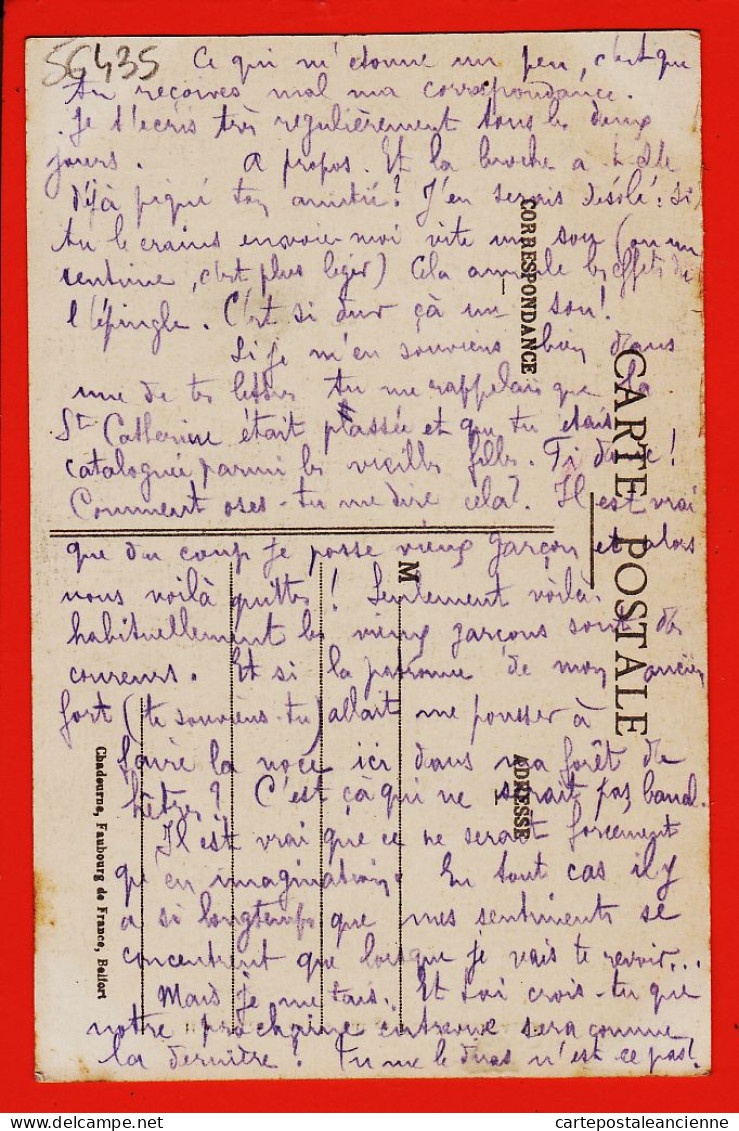 56435
Ce qui m'etonne un peu, c'est que
tu reçoives mal ma correspondance.
Je t'ecris très regulièrement tous les deux
jours. A propos. Et la broche a-t-elle
déjà piqué ton amitié? J'en serais désolé. Si
tu le crains envoie-moi vite un sou (ou un
centime, c'est plus léger) Cela annule les effets de
l'épingle. C'est si dur çà un sou!
Si je m'en souviens bien, dans
une de tes lettres tu me rappelais que la
Ste Catherine était passée et que tu étais
cataloguée parmi les vieilles filles. Ti donc!
Comment oses-tu me dire cela? Il est vrai
que du coup je passe vieux garçon et alors
nous voilà quittes! Seulement voilà.
habituellement les vieux garçons sont des
coureurs. Et si la patronne de mon ancien
fort (te souviens-tu) allait me pousser à
faire la noce ici dans ma forêt de
hêtres? C'est çà qui ne serait pas banal.
Il est vrai que ce ne serait forcement
qu'en imagination. En tout cas il y
a si longtemps que mes sentiments se
concentrent que lorsque je vais te revoir...
Mais je me tais. Et toi crois-tu que
notre prochaine entrevue sera comme
la dernière? Tu me le diras n'est ce pas?
CARTE POSTALE
CORRESPONDANCE
ADRESSE
M
Chadourne, Faubourg de France, Belfort
delcampe.net
cartepostaleancienne